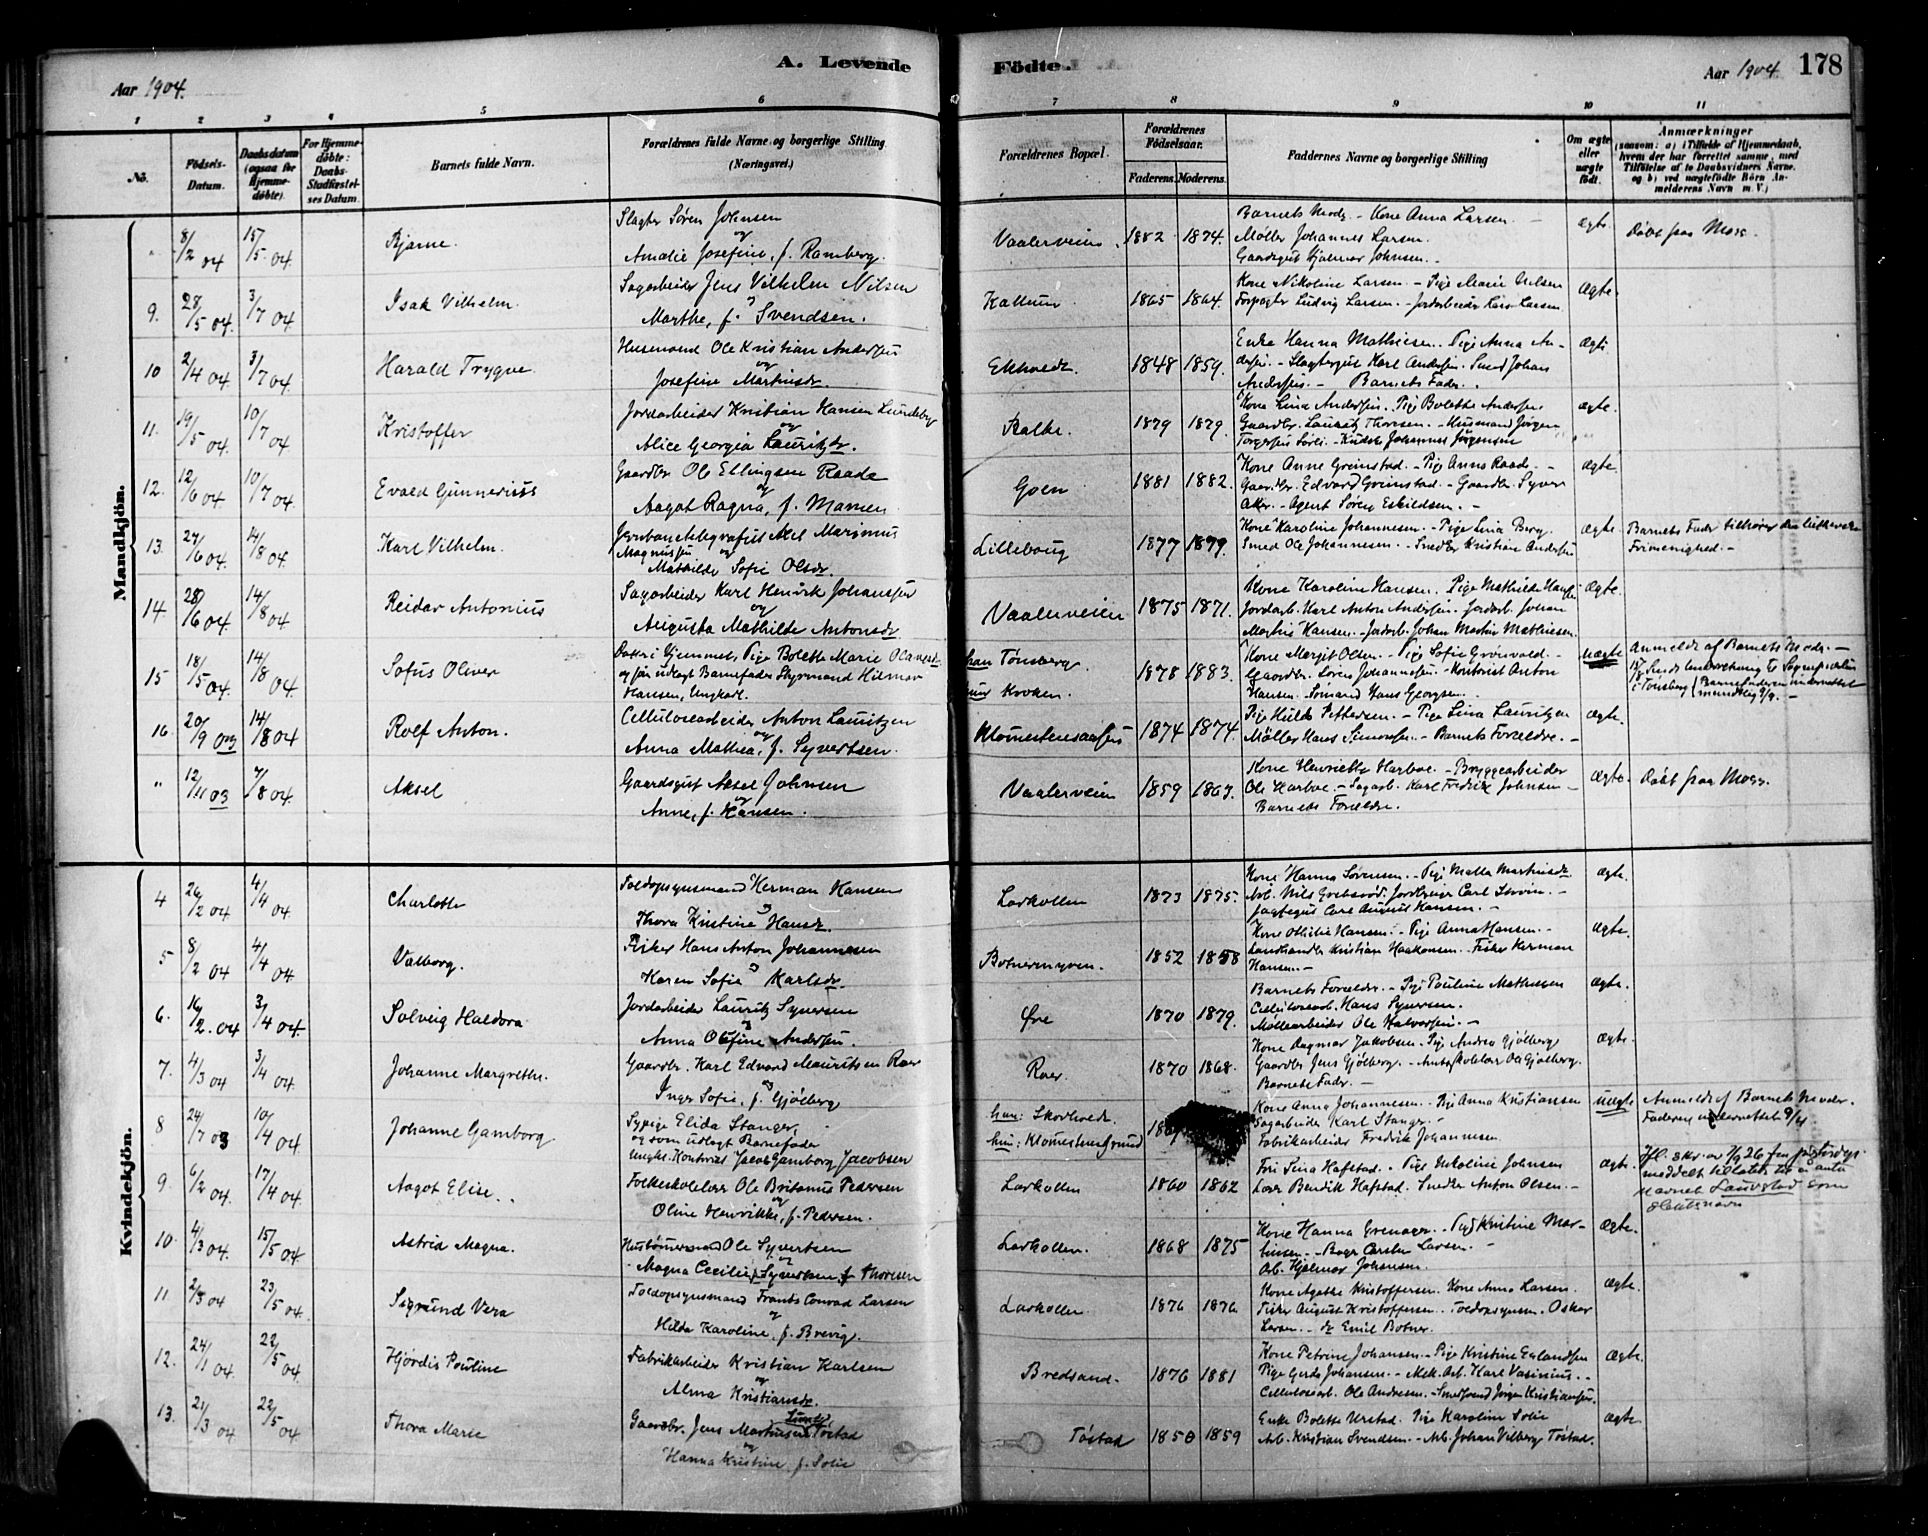 A. Levende
Födte.
Aar 1904.
Aar 1904. 178
1 2 3 4 5 6 7 8 9 10 11
No.
Födsels-Datum.
Daabsdatum (ogsaa for Hjemme-døbte).
For Hjemme-döbte: Daabs-Stadfæstel-ses Datum.
Barnets fulde Navn.
Forældrenes fulde Navne og borgerlige Stilling (Næringsvei.)
Forældrenes Bopæl.
Forældrenes Födselsaar.
Faderens. Moderens.
Faddernes Navne og borgerlige Stilling
Om ægte eller uægte födt.
Anmærkninger
(saasom: a) i Tilfælde af Hjemmedaab, hvem der har forrettet samme, med Tilföielse af to Daabsvidners Navne, og b) ved uægtefödte Börn Anmelderens Navn m. V.)
Mandkjön.
" 8/2 04 15/5 04. Bjarne. Slagter Søren Johnsen og Amalie Josefine, f. Ramberg. Vaalerveien. 1882 1874. Barnets Moder. - Kone Anna Larsen. - Møller Johannes Larsen. Gaardsgut Hjalmar Johnsen. - Ægte. Døbt paa Moss.
9. 28/5 04. 3/7 04 Isak Vilhelm. Sagarbeider Jens Vilhelm Nilsen og Marthe, f. Svendsen. Kallum 1865 1864. Kone Nikoline Larsen. - Pige Marie Nilsen Forpagter Ludvig Larsen. - Jordarbeider Larsen. Ægte.
10 2/4 04. 3/7 04. Harald Trygve. Husmand Ole Kristian Andersen og Josefine Martinsdr. Ekholdt 1848 1859. Enke Hanna Mathiesen. - Pige Anna Andersen. - Slagtergut Karl Andersen. Smed Johan Andersen. - Barnets Fader. Ægte
11. 19/5 04. 10/7 04 Kristoffer Jordarbeider Kristian Hansen Lundeby og Alice Georgia Lauritzdr. Balke. 1879 1879. Kone Lina Andersen. Pige Bolette Andersen. Gaardbr. Lauritz Thoresen. - Husmand Jørgen Torgersen - Kudsk Johannes Jørgensen ægte.
12. 12/6 04. 10/7 04 Evald Gunnerius Gaardbr Ole Ellingsen Raade og Aagot Ragna, f. Mansen. Goen 1881 1882. Kone Anne Grimstad. - Pige Anna Raade. - Gaardbr. Edvard Grimstad. - Gaardbr. Syver - Agent Søren Eskildsen. - Ægte.
13. 27/6 04. 14/8 04 Karl Vilhelm. Jernbanetelegrafist Axel Marinius Magnussen og Mathilde Sofie Olsdr. Lillebaug 1877 1879. Kone Karoline Johannesen. - Pige Lina Berg. Smed Ole Johannesen. - Snedker Kristian Andersen Ægte. Barnets Fader tilhører den lutherske Frimenighed. -
14. 28/6 04. 14/8 04 Reidar Antonius Sagarbeider Karl Henrik Johansen og Augusta Mathilde Antonsdr Vaalerveien 1875 1871. Kone Karoline Hansen. Pige Mathilde Hansen Jordarb. Karl Anton Andersen. - Jordarb. Johan Martin Hansen. - Jordarb. Johan Martin Mathiesen. Ægte.
15 18/5 04. 14/8 04 Sofus Oliver Datter i Hjemmet, Pige Bolette Marie Olavesdr og som udlagt Barnefader Styrmand Hilmar Hansen, Ungkarl. han Tønsberg. hun Kroken. 1878 1883. Kone Margit Olsen. - Pige Sofie Grönvold. - Gaardbr. Søren Johannesen. - Kontorist Anton Hansen. - Sømand Hans Georgsen. - uægte Anmeldt af Barnets Moder. - Sendt Underretning til Sognepresten i Tønsberg (Barnefaderen underrettet mundtlig 9/9. -
16. 20/9 03 14/8 04 Rolf Anton. Cellulosearbeider Anton Lauritzen og Anna Mathea, f. Syvertsen. Klomestensaasen 1874 1874. Pige Hulda Pettersen. - Pige Lina Lauritzen Møller Hans Simonsen. - Barnets Forældre. - ægte.
" 12/11 03 7/8 04. Aksel Gaardsgut Aksel Johnsen og Anne, f. Hansen. Vaalerveien 1859 1863. Kone Henriette Harboe. - Bryggearbeider Ole Harboe. - Sagarb. Karl Fredrik Johnsen - Barnets Forældre. Ægte. Døbt paa Moss.
Kvindekjön.
4 26/2 04 4/4 04 Charlotte Toldopsynsmand Herman Hansen og Thora Kristine Hansdr. Larkollen 1873 1875. Kone Hanna Sørensen. - Pige Malla Martinsdr. Arb. Nils Jordbruger Carl - Carl August Hansen. - Ægte.
5 8/2 04 4/4 04 Valborg. Fisker Hans Anton Johannesen og Karen Sofie Karlsdr. Botnermyren. 1852 1858 Kone Othilie Hansen. - Pige Anna Hansen. - Landhandler Kristian Haakonsen. - Fisker Herman Hansen. - Ægte.
6. 16/2. 04 3/4 04. Solveig Haldora Jordarbeider Lauritz Syversen og Anna Olefine Andersen. Øre 1870 1879. Barnets Forældre. - Pige Pauline Mathiesen Cellulosearb. Hans Syversen. Møllearbeider Ole Halvorsen. - Ægte.
7. 4/3 04 3/4 04. Johanne Margrethe. Gaardbr. Karl Edvard Mauritsen Roer og Inger Sofie, f. Gjølberg Roer. 1870 1868. Kone Dagmar Jakobsen. - Pige Andrea Gjølberg Gaardbr Jens Gjølberg. - Amtsskolelær. Ole Gjølberg. Barnets Fader. - Ægte.
8 24/7 03 10/4 04. Johanne Gamborg Sypige Elida Stanger, og som udlagt Barnefader Ungk. Kontorist Jacob Gamborg Jacobsen han: Skovholdt hun: Klomestensgrund Kone Anna Johannesen. - Pige Anna Kristiansen Sagarbeider Karl Stanger. - Fabrikarbeider Fredrik Johannesen. uægte Anmeldt af Barnets Moder. Faderen underrettet 9/4
9. 6/2 04. 17/4 04. Aagot Elise. Folkeskolelærer Ole Britanus Pedersen og Oline Henrikke, f. Pedersen. Larkollen 1860 1862 Fru Lina Hafstad. - Pige Nikoline Johnsen Lærer Bendik Hafstad. Snedker Anton Olsen. - ægte. Ifl. skr. av 7/9 26 fra meddelt tillatelse til å anta navnet Laurstad som slektsnavn
10. 4/3 04. 15/5 04. Astrid Magna. Husmand Ole Syvertsen og Magna Cecilie Syvertsen f Thoresen Larkollen. 1868 1875 Kone Hanna Grenager. - Pige Kristine Martinsen. - Carsten Larsen. - Arb. Hjalmar Johansen. Ægte.
11. 2/3 04 23/5 04. Sigrund Vera Toldopsynsmand Frants Conrad Larsen og Hilda Karoline, f. Brevig. Larkollen 1876 1876. Kone Agathe Kristoffersen. Kone Anna Larsen. Fisker August Kristoffersen. - Toldopsynsm. Oskar Larsen. - do Emil Botner. Ægte.
12. 24/1 04 22/5 04. Hjördis Pouline Fabrikarbeider Kristian Karlsen og Alma Kristiansdr. Bredsand. 1876 1881 Kone Petrine Johansen. - Pige Kristine Erlandsen Pige Gerda Johansen. - Mek. Arb. Karl - Cellulosearb. Ole Andersen. - Jørgen Kristiansen. Ægte.
13. 21/3 04 22/5 04. Thora Marie Gaardbr. Jens Martinsen Tøstad og Hanna Kristine, f. Solie Tøstad 1850 1859 Enke Bolette Urstad. Pige Karoline Solie Arb. Kristian Svendsen. - Arb. Johan Vilberg Tøstad. Ægte